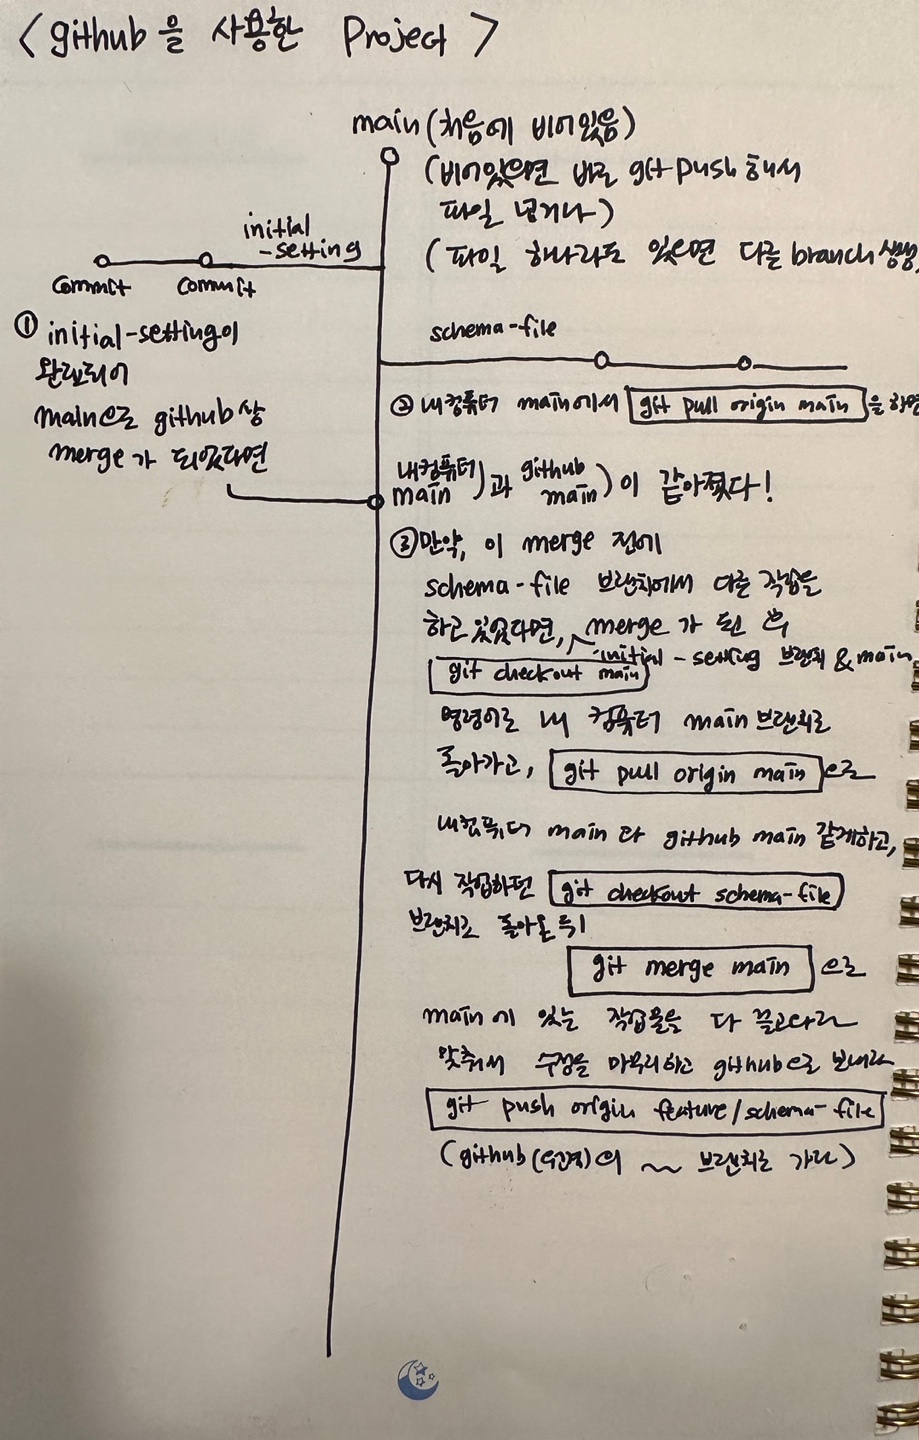 <github을 사용한 Project>
main (처음에 비어있음)
(비어있으면 바로 git push 해서
파일 넘기나)
(파일 하나라도 있으면 다른 branch 생성,
initial
-setting
commit commit
① initial-setting이
완료되어
main으로 github상
merge가 되었다면
schema-file
② 내컴퓨터 main에서 git pull origin main 을 하면
내컴퓨터 main)과 github main)이 같아졌다!
③ 만약, 이 merge 전에
schema-file 브랜치에서 다른 작업을
하고 있었다면, merge가 된 후
initial-setting 브랜치 & main
git checkout main
명령어로 내 컴퓨터 main 브랜치로
돌아가고, git pull origin main 으로
내컴퓨터 main 과 github main 같게하고,
다시 작업하던 git checkout schema-file
브랜치로 돌아온 뒤
git merge main 으로
main에 있는 작업물을 다 끌고와라
맞춰서 수정을 마무리하고 github으로 보내라
git push origin feature/schema-file
(github(원격)의 ~~ 브랜치로 가라)